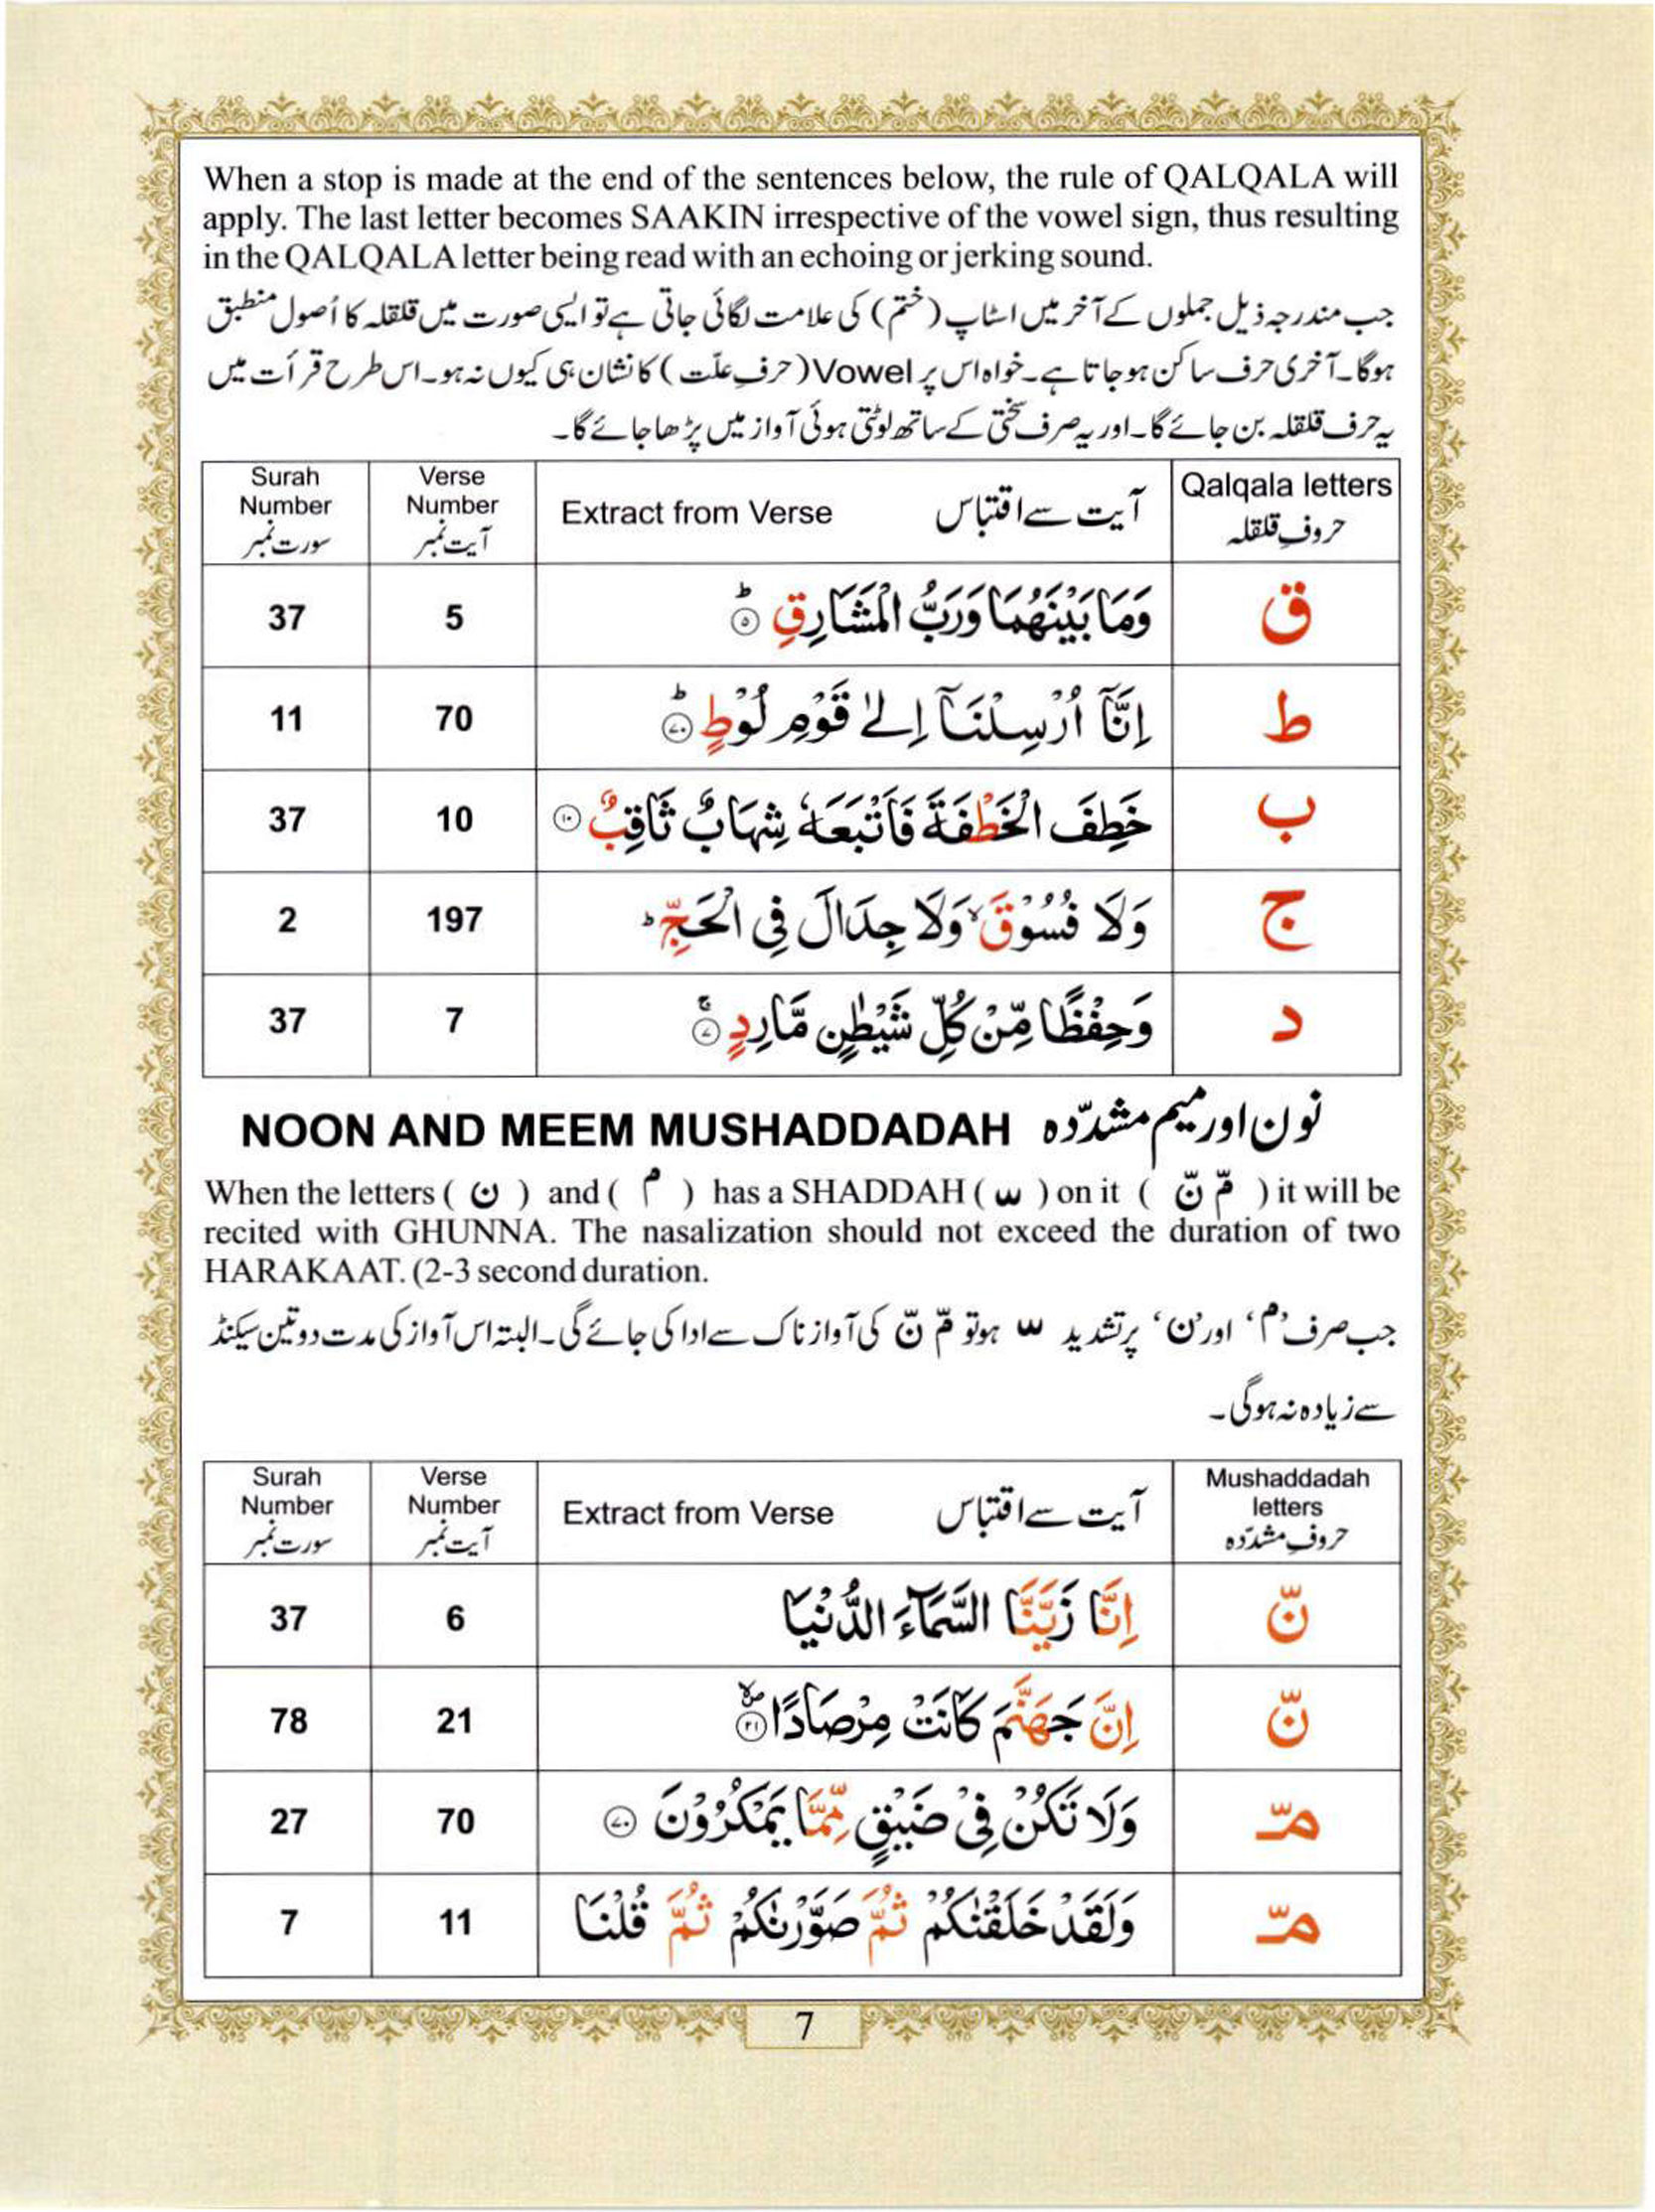 When a stop is made at the end of the sentences below, the rule of QALQALA will
apply. The last letter becomes SAAKIN irrespective of the vowel sign, thus resulting
in the QALQALA letter being read with an echoing or jerking sound.
جب مندرجہ ذیل جملوں کے آخر میں اسٹاپ (ختم) کی علامت لگائی جاتی ہے تو ایسی صورت میں قلقلہ کا اُصول منطبق
ہوگا۔ آخری حرف ساکن ہو جاتا ہے۔ خواہ اس پر Vowel (حرفِ علّت) کا نشان ہی کیوں نہ ہو۔ اس طرح قرأت میں
یہ حرف قلقلہ بن جائے گا۔ اور یہ صرف سختی کے ساتھ لوٹتی ہوئی آواز میں پڑھا جائے گا۔
Surah Number سورت نمبر | Verse Number آیت نمبر | Extract from Verse آیت سے اقتباس | Qalqala letters حروفِ قلقلہ
37 | 5 | وَمَا بَيْنَهُمَا وَرَبُّ الْمَشَارِقِ ؕ ۵ | ق
11 | 70 | اِنَّاۤ اُرْسِلْنَاۤ اِلٰى قَوْمِ لُوْطٍ ؕ ۷۰ | ط
37 | 10 | خَطِفَ الْخَطْفَةَ فَاَتْبَعَهٗ شِهَابٌ ثَاقِبٌ ۱۰ | ب
2 | 197 | وَلَا فُسُوْقَ ۙ وَلَا جِدَالَ فِى الْحَجِّ ؕ | ج
37 | 7 | وَحِفْظًا مِّنْ كُلِّ شَيْطٰنٍ مَّارِدٍ ۚ ۷ | د
NOON AND MEEM MUSHADDADAH نون اور میم مشدّدہ
When the letters ( ن ) and ( م ) has a SHADDAH ( ّ ) on it ( مّ نّ ) it will be
recited with GHUNNA. The nasalization should not exceed the duration of two
HARAKAAT. (2-3 second duration.
جب صرف 'م' اور 'ن' پر تشدید ّ ہو تو مّ نّ کی آواز ناک سے ادا کی جائے گی۔ البتہ اس آواز کی مدت دو تین سیکنڈ
سے زیادہ نہ ہوگی۔
Surah Number سورت نمبر | Verse Number آیت نمبر | Extract from Verse آیت سے اقتباس | Mushaddadah letters حروفِ مشدّدہ
37 | 6 | اِنَّا زَيَّنَّا السَّمَآءَ الدُّنْيَا | نّ
78 | 21 | اِنَّ جَهَنَّمَ كَانَتْ مِرْصَادًا ۙ ۲۱ | نّ
27 | 70 | وَلَا تَكُنْ فِىْ ضَيْقٍ مِّمَّا يَمْكُرُوْنَ ۷۰ | مّـ
7 | 11 | وَلَقَدْ خَلَقْنٰكُمْ ثُمَّ صَوَّرْنٰكُمْ ثُمَّ قُلْنَا | مّـ
7